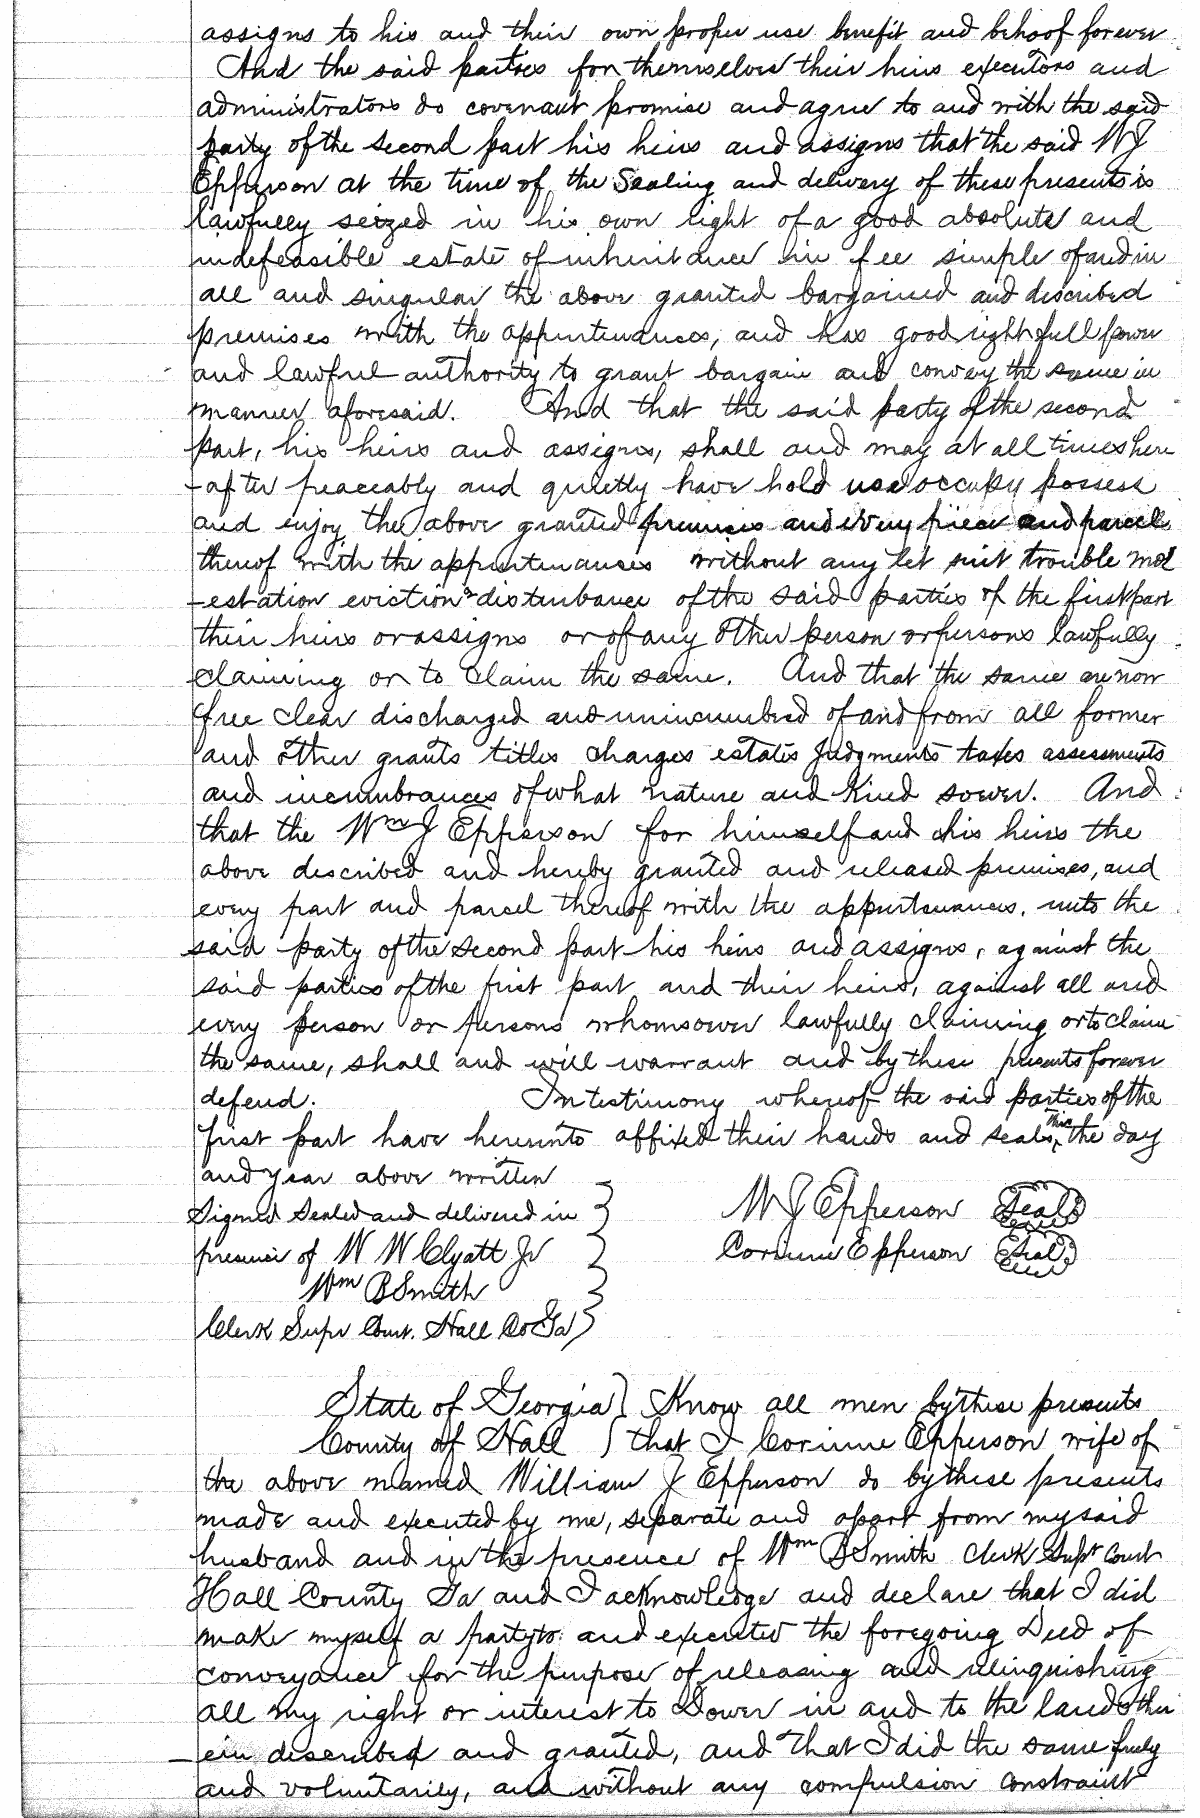 assigns to his and their own proper use benefit and behoof forever
And the said parties for themselves their heirs executors and
administrators do covenant promise and agree to and with the said
party of the second part his heirs and assigns that the said W J
Epperson at the time of the Sealing and delivery of these presents is
lawfully seized in his own right of a good absolute and
indefeasible estate of inheritance in fee simple of and in
all and singular the above granted bargained and described
premises with the appurtenances, and has good right full power
and lawful authority to grant bargain and convey the same in
manner aforesaid. And that the said party of the second
part, his heirs and assigns, shall and may at all times here
-after peaceably and quietly have hold use occupy possess
and enjoy the above granted premises and every piece and parcel
thereof with the appurtenances without any let suit trouble mol
-estation eviction & disturbance of the said parties of the first part
their heirs or assigns or of any other person or persons lawfully
claiming or to claim the same. And that the same are now
free clear discharged and unincumbred of and from all former
and other grants titles charges estates judgments taxes assessments
and incumbrances of what nature and kind soever. And
that the Wm J Epperson for himself and his heirs the
above described and hereby granted and released premises, and
every part and parcel thereof with the appurtenances, unto the
said party of the second part his heirs and assigns, against the
said parties of the first part and their heirs, against all and
every person or persons whomsoever lawfully claiming or to claim
the same, shall and will warrant and by these presents forever
defend. In testimony whereof the said parties of the
first part have hereunto affixed their hands and seals, this the day
and year above written
Signed Sealed and delivered in } W J Epperson Seal
presence of W W Clyatt Jr } Corinne Epperson Seal
Wm B Smith
Clerk Supr Court. Hall Co Ga }
State of Georgia } Know all men by these presents
County of Hall } that I Corinne Epperson wife of
the above named William J Epperson do by these presents
made and executed by me, separate and apart from my said
husband and in the presence of Wm B Smith Clerk Supr Court
Hall County Ga and I acknowledge and declare that I did
make myself a party to and executed the foregoing Deed of
conveyance for the purpose of releasing and relinquishing
all my right or interest to Dower in and to the lands ther
-ein described and granted, and that I did the same freely
and voluntarily, and without any compulsion constraint